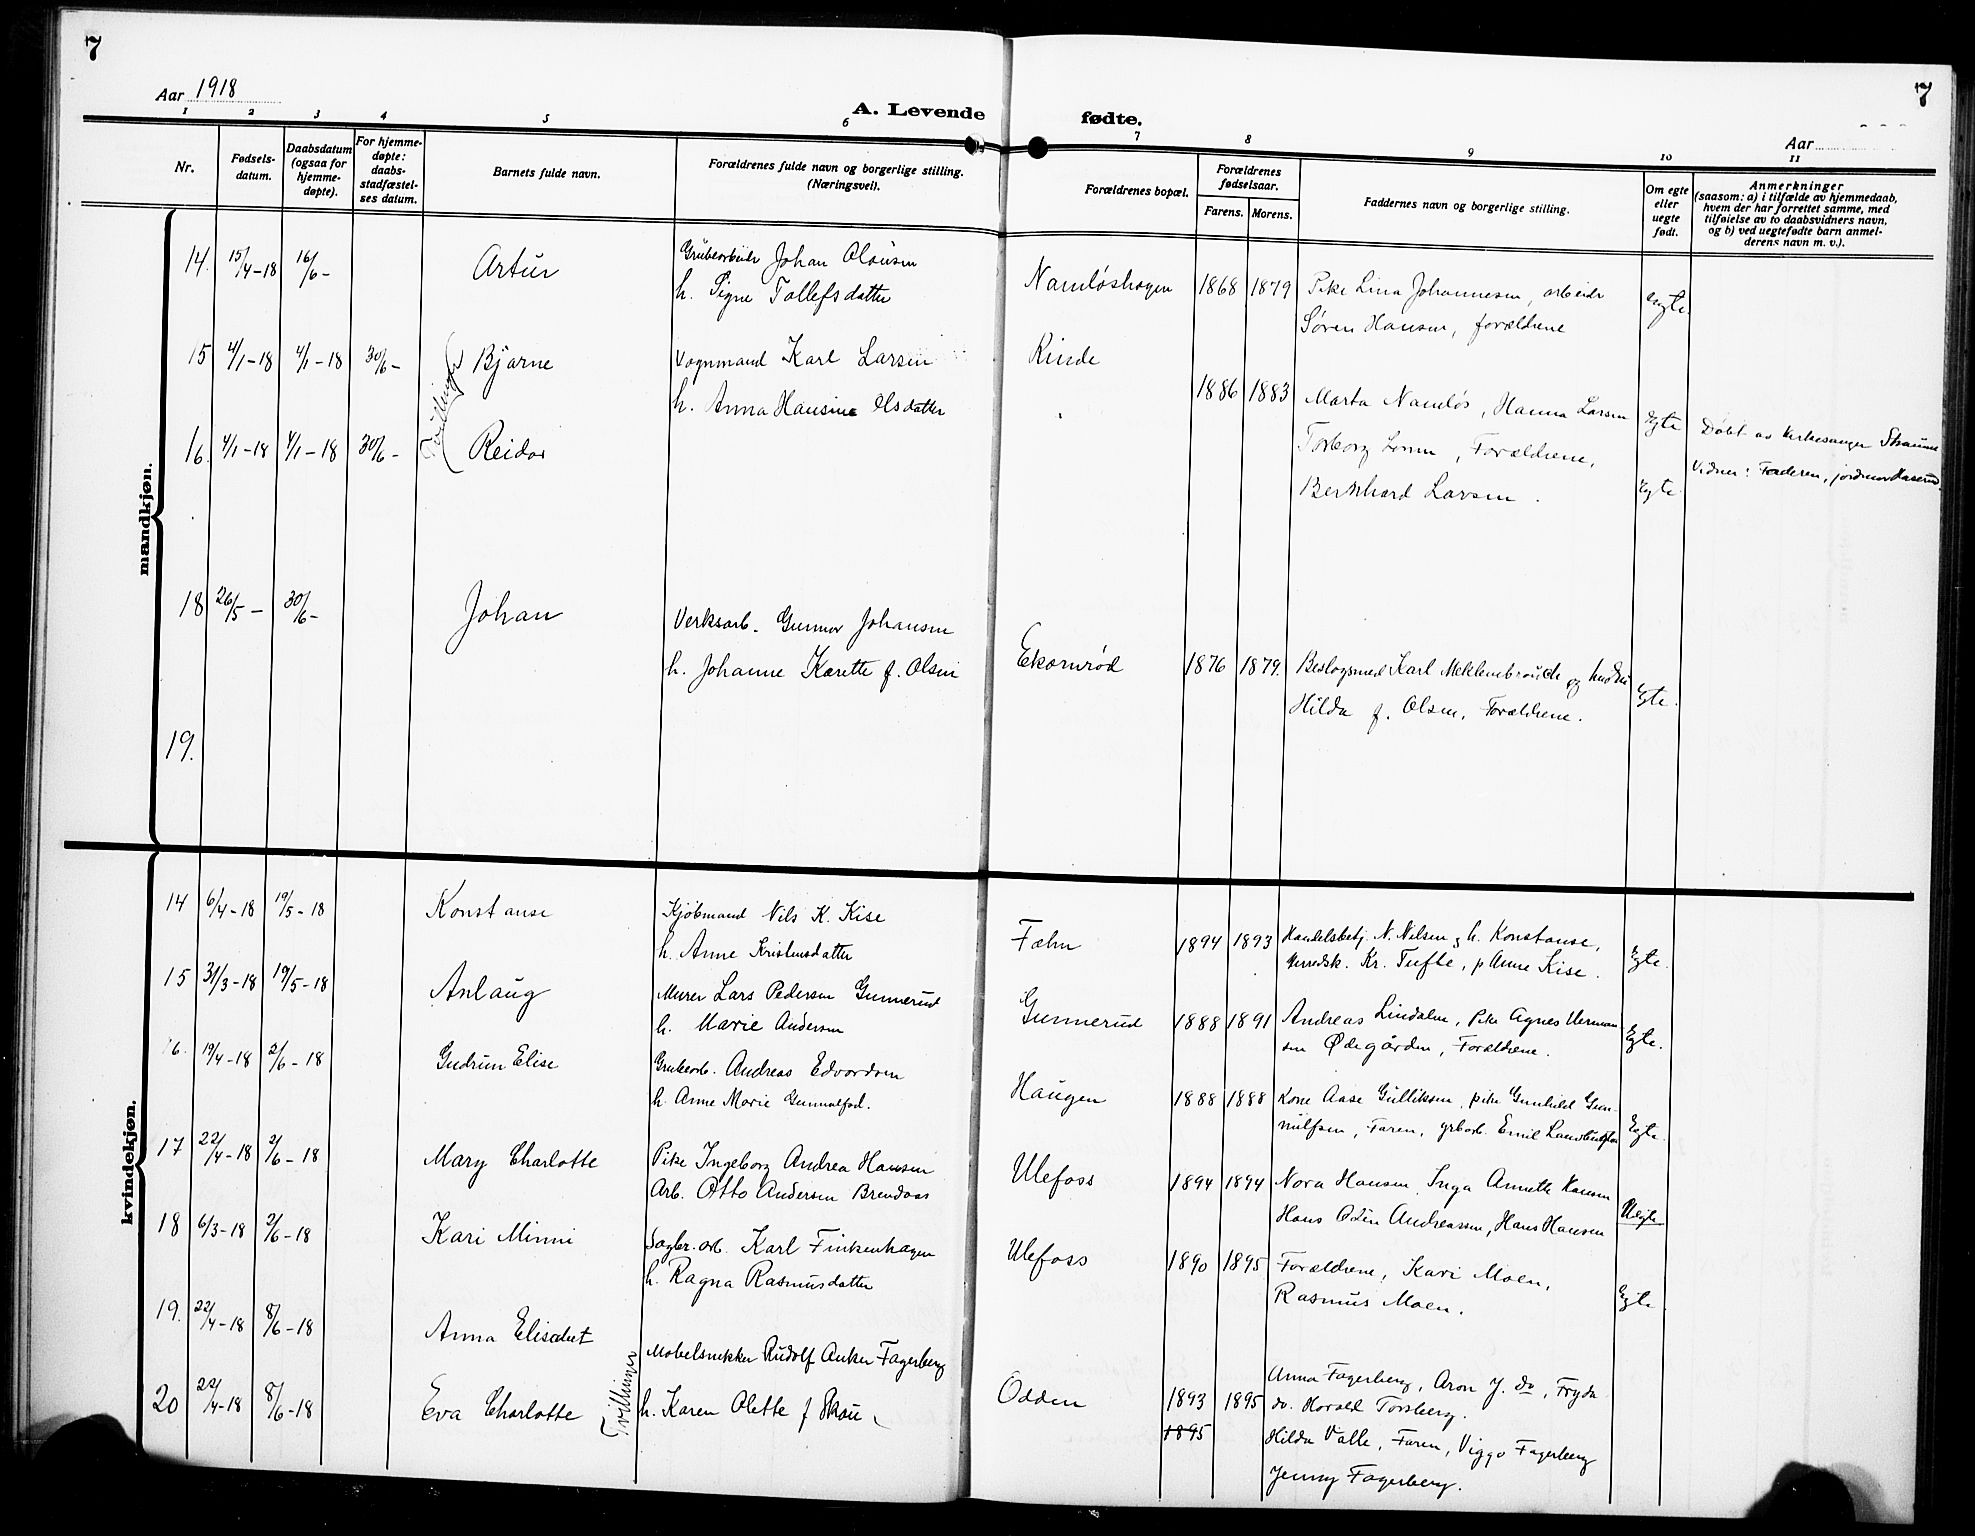 7
7
Aar 1918
A. Levende fødte.
Aar
1 2 3 4 5 6 7 8 9 10 11
Nr.
Fødsels-
datum.
Daabsdatum
(ogsaa for
hjemme-
døpte).
For hjemme-
døpte:
daabs-
stadfæstel-
ses datum.
Barnets fulde navn.
Forældrenes fulde navn og borgerlige stilling.
(Næringsvei).
Forældrenes bopæl.
Forældrenes
fødselsaar.
Farens. Morens.
Faddernes navn og borgerlige stilling.
Om egte
eller
uegte
født.
Anmerkninger
(saasom: a) i tilfælde av hjemmedaab,
hvem der har forrettet samme, med
tilføielse av to daabsvidners navn,
og b) ved uegtefødte barn anmel-
derens navn m. v.).
mandkjøn.
14. 15/4-18 16/6- Artur Grubearbeidr Johan Olausen Namløshagen 1868 1879 Pike Lina Johannesen, arbeidr egte
h. Signe Tollefsdatter Søren Hansen, forældrene
15 4/1-18 4/1-18 30/6- Bjarne Vognmand Karl Larsen Rinde
Tvillinger
h. Anna Hansine Olsdatter 1886 1883 Marta Namløs, Hanna Larsen egte Døbt av Kirkesanger
16. 4/1-18 4/1-18 30/6- Reidar Torborg Larsen, Forældrene, Vidner: Faderen, jordmor
Bernhard Larsen. Egte.
18 26/5- 30/6- Johan Verksarb. Gunnar Johansen
h. Johanne Karette f. Olsen Ekornrød 1876 1879. Beslagsmed Karl og hustru Egte.
Hilda f. Olsen, Forældrene.
19.
kvindekjøn.
14 6/4-18 19/5-18 Konstanse Kjøbmand Nils K. Kise Fæhn 1894 1893 Handelsbetj. N. Nilsen og h. Konstanse, Egte.
h. Anne Kristensdatter Herredsk. Kr. Tufte, p Anne Kise.
15 31/3-18 19/5-18 Anlaug Murer Lars Pedersen Gunnerud Gunnerud 1888 1891 Andreas Lindalen, Pike Agnes Herman Egte.
h. Marie Andersen sen Ødegården, Forældrene.
16. 19/4-18 2/6-18 Gudrun Elise Grubearb. Andreas Edvardsen Haugen 1888 1888 Kone Aase Gulliksen, pike Gunhild Gun- Egte.
h. Anne Marie nulfsen, Faren, grbarb. Emil
17 22/4-18 2/6-18 Mary Charlotte Pike Ingeborg Andrea Hansen Ulefoss 1894 1894 Nora Hansen, Inga Annette Hansen Uegte
Arb. Otto Andersen Brendaas Hans Odin Andreassen, Hans Hansen
18 6/3-18 2/6-18 Kari Minni Sagbr. arb. Karl Finkenhagen Ulefoss 1890 1895 Forældrene, Kari Moen, Egte
h. Ragna Rasmusdatter Rasmus Moen.
19. 22/4-18 8/6-18 Anna Elisabet Møbelsnekker Rudolf Anker Fagerberg
Tvillinger
Anna Fagerberg, Aron J. do, Fryda
20 22/4-18 8/6-18 Eva Charlotte h. Karen Olette f Skau Odden 1893 1895 do. Harald Torsberg.
1895 Hilda Valle, Faren, Viggo Fagerberg
Jenny Fagerberg.